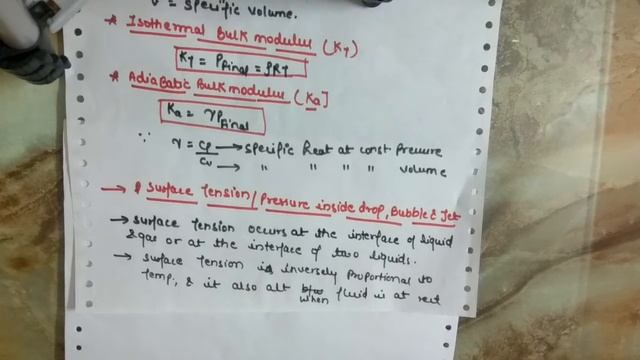 V = specific volume.
* Isothermal Bulk modulus (KT)
KT = PFinal = ρRT
* Adiabatic Bulk modulus (Ka]
Ka = γPFinal
∵ γ = Cp/Cv → specific heat at const Pressure
→ " " " " volume
→ * Surface Tension/Pressure inside drop, Bubble & Jet
→ surface tension occurs at the interface of liquid
& gas or at the interface of two liquids.
→ surface tension is inversely proportional to
temp; & it also when fluid is at rest